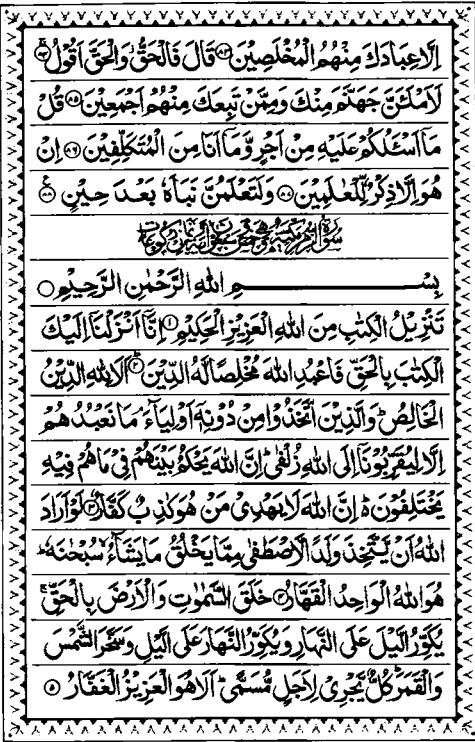 اِلَّا عِبَادَكَ مِنْهُمُ الْمُخْلَصِيْنَ ۝۸۳ قَالَ فَالْحَقُّ وَالْحَقَّ اَقُوْلُ ۝۸۴
لَاَمْلَئَنَّ جَهَنَّمَ مِنْكَ وَمِمَّنْ تَبِعَكَ مِنْهُمْ اَجْمَعِيْنَ ۝۸۵ قُلْ
مَاۤ اَسْـَٔلُكُمْ عَلَيْهِ مِنْ اَجْرٍ وَّمَاۤ اَنَا مِنَ الْمُتَكَلِّفِيْنَ ۝۸۶ اِنْ
هُوَ اِلَّا ذِكْرٌ لِّلْعٰلَمِيْنَ ۝۸۷ وَلَتَعْلَمُنَّ نَبَاَهٗ بَعْدَ حِيْنٍ ۝۸۸
بِسْمِ اللهِ الرَّحْمٰنِ الرَّحِيْمِ ۝
تَنْزِيْلُ الْكِتٰبِ مِنَ اللهِ الْعَزِيْزِ الْحَكِيْمِ ۝۱ اِنَّاۤ اَنْزَلْنَاۤ اِلَيْكَ
الْكِتٰبَ بِالْحَقِّ فَاعْبُدِ اللهَ مُخْلِصًا لَّهُ الدِّيْنَ ۝۲ اَلَا لِلّٰهِ الدِّيْنُ
الْخَالِصُ ؕ وَالَّذِيْنَ اتَّخَذُوْا مِنْ دُوْنِهٖۤ اَوْلِيَآءَ ۘ مَا نَعْبُدُهُمْ
اِلَّا لِيُقَرِّبُوْنَاۤ اِلَى اللهِ زُلْفٰى ؕ اِنَّ اللهَ يَحْكُمُ بَيْنَهُمْ فِيْ مَا هُمْ فِيْهِ
يَخْتَلِفُوْنَ ؕ اِنَّ اللهَ لَا يَهْدِيْ مَنْ هُوَ كٰذِبٌ كَفَّارٌ ۝۳ لَوْ اَرَادَ
اللهُ اَنْ يَّتَّخِذَ وَلَدًا لَّاصْطَفٰى مِمَّا يَخْلُقُ مَا يَشَآءُ ۙ سُبْحٰنَهٗ ؕ
هُوَ اللهُ الْوَاحِدُ الْقَهَّارُ ۝۴ خَلَقَ السَّمٰوٰتِ وَالْاَرْضَ بِالْحَقِّ ۚ
يُكَوِّرُ الَّيْلَ عَلَى النَّهَارِ وَيُكَوِّرُ النَّهَارَ عَلَى الَّيْلِ وَسَخَّرَ الشَّمْسَ
وَالْقَمَرَ ؕ كُلٌّ يَّجْرِيْ لِاَجَلٍ مُّسَمًّى ؕ اَلَا هُوَ الْعَزِيْزُ الْغَفَّارُ ۝۵